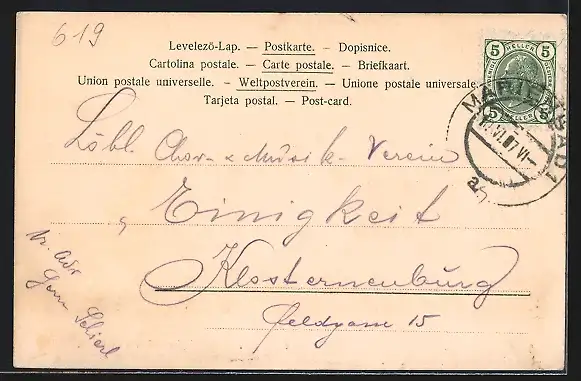 619
Levelező-Lap. — Postkarte. — Dopisnice.
Cartolina postale. — Carte postale. — Briefkaart.
Union postale universelle. — Weltpostverein. — Unione postale universale.
Tarjeta postal. — Post-card.
5 HELLER 5
MARIENBAD 1
VI 07 VI
Löbl. Chor- & Musik-Verein
„Einigkeit
Klosterneuburg
Feldgasse 15